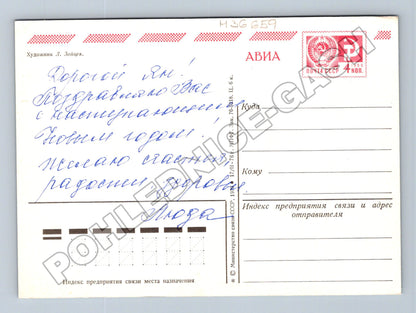 436659
Художник Л. Зайцев.
АВИА
ПОЧТА СССР
4 КОП.
Дорогой Ян!
Поздравляю Вас
с наступающим
Новым годом!
Желаю счастья,
радости, здоровья
Люда
Куда
Кому
Индекс предприятия связи и адрес
отправителя
Индекс предприятия связи места назначения
© Министерство связи СССР,
POHLEDNICE-GACH